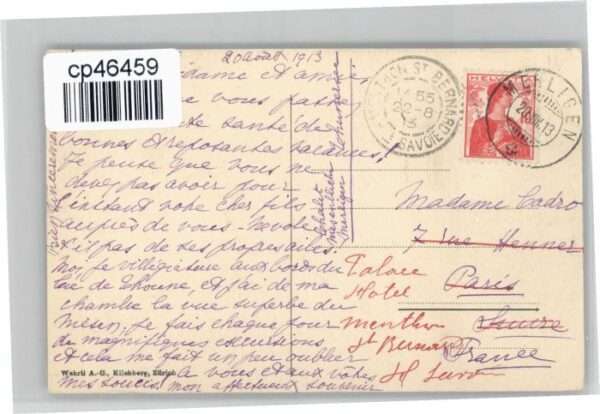 cp46459
20 août 1913
Madame et amie,
vous passez
santé de
bonnes et reposantes vacances,
je pense que vous ne
devez pas avoir pour
l'instant votre cher fils
auprès de vous.
t'il pas de ses
Moi, je villégiature aux bords du
lac de Thoune, et j'ai de ma
chambre la vue superbe du
Niesen, je fais chaque jour
de magnifiques excursions,
et cela me fait un peu oublier
mes soucis. à vous et aux vôtres
mon affectueux souvenir
Chalet
Merligen
MENTHON ST BERNARD
55
22-8
13
HTE SAVOIE
HELVETIA
MERLIGEN
Madame Cadro
7 rue Henner
Paris
France
Palace
Hotel
Menthon
St Bernard
Hte Savoie
Wehrli A.-G., Kilchberg, Zürich